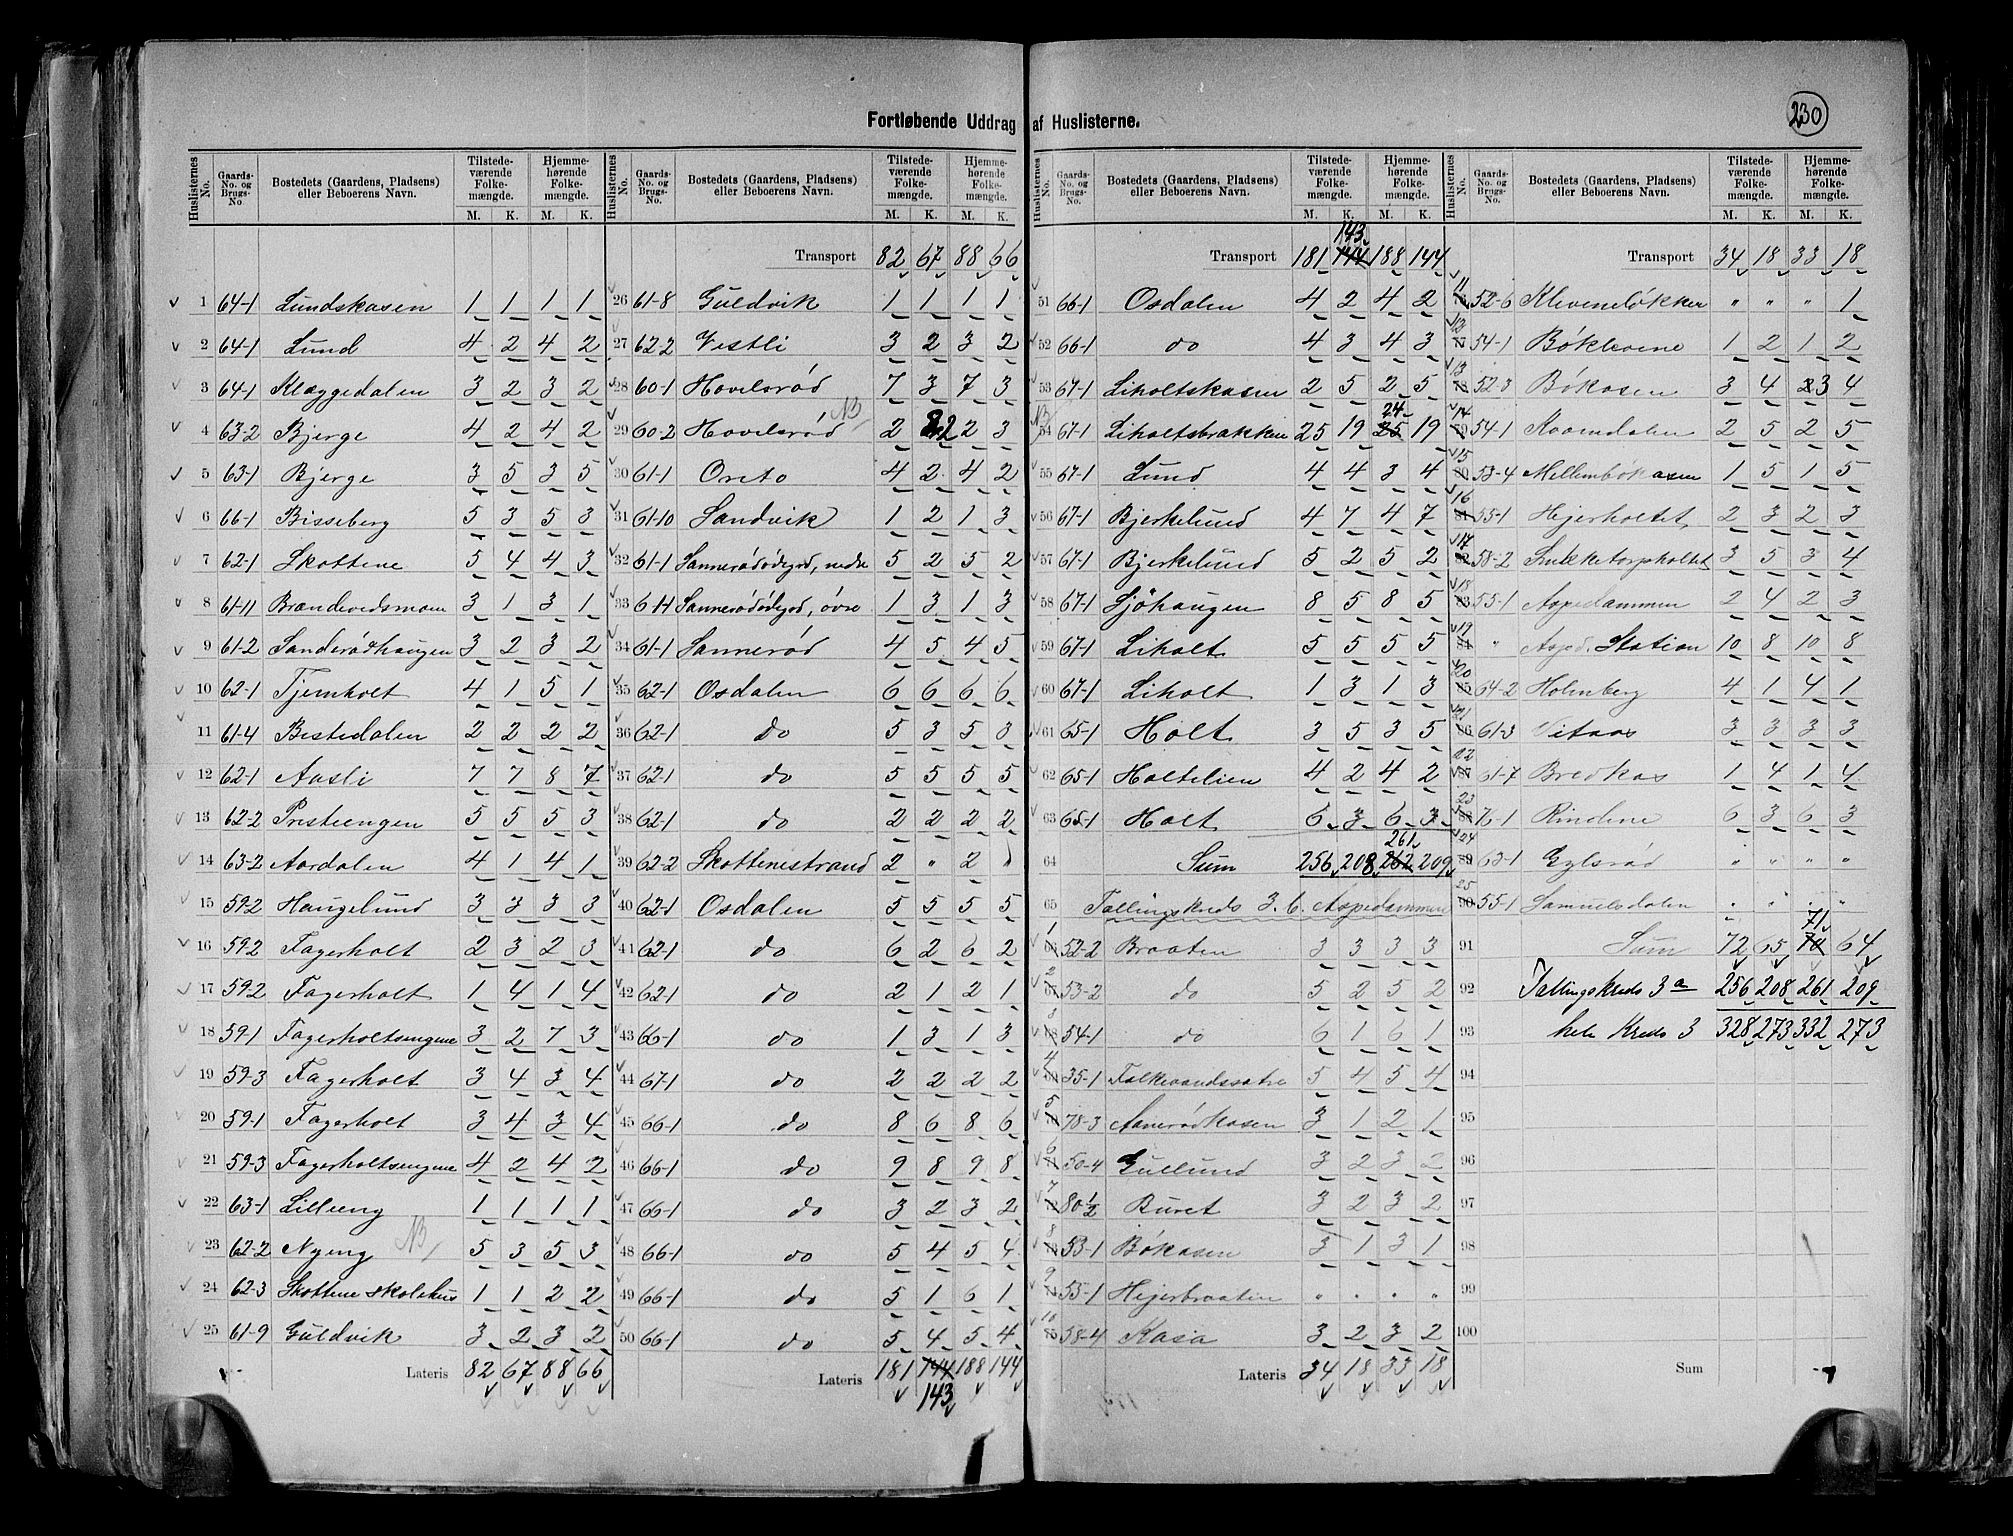 230
Fortløbende Uddrag af Huslisterne.
Huslisternes No. Gaards-No. og Brugs-No. Bostedets (Gaardens, Pladsens) eller Beboerens Navn. Tilstedeværende Folkemængde. M. K. Hjemmehørende Folkemængde. M. K.
1 64-1 Lundskasen 1 1 1 1
2 64-1 Lund 4 2 4 2
3 64-1 Klæggedalen 3 2 3 2
4 63-2 Bjerge 4 2 4 2
5 63-1 Bjerge 3 5 3 5
6 66-1 Bisseberg 5 3 5 3
7 62-1 Skottene 5 4 4 3
8 61-11 Brandvedsmoen 3 1 3 1
9 61-2 Sanderødhaugen 3 2 3 2
10 62-1 Tjernholt 4 1 5 1
11 61-4 Bestedalen 2 2 2 2
12 62-1 Aasli 7 7 8 7
13 62-2 Presteengen 5 5 5 3
14 63-2 Aardalen 4 1 4 1
15 59-2 Haugelund 3 3 3 3
16 59-2 Fagerholt 2 3 2 3
17 59-2 Fagerholt 1 4 1 4
18 59-1 Fagerholtsengene 3 2 7 3
19 59-3 Fagerholt 3 4 3 4
20 59-1 Fagerholt 3 4 3 4
21 59-3 Fagerholtsengene 4 2 4 2
22 63-1 Lilleeng 1 1 1 1
23 62-2 Nyeng NB 5 3 5 3
24 62-3 Skottene skolehus 1 1 2 2
25 61-9 Guldvik 3 2 3 2
Lateris 82 67 88 66
Huslisternes No. Gaards-No. og Brugs-No. Bostedets (Gaardens, Pladsens) eller Beboerens Navn. Tilstedeværende Folkemængde. M. K. Hjemmehørende Folkemængde. M. K.
Transport 82 67 88 66
26 61-8 Guldvik 1 1 1 1
27 62-2 Vestli 3 2 3 2
28 60-1 Hovelsrød 7 3 7 3
29 60-2 Hovelsrød NB 2 2 2 3
30 61-1 Oreto 4 2 4 2
31 61-10 Sandvik 1 2 1 3
32 61-1 Sannerødødegrd, nedre 5 2 5 2
33 61-1 Sannerødødegrd, øvre 1 3 1 3
34 61-1 Sannerød 4 5 4 5
35 62-1 Osdalen 6 6 6 6
36 62-1 do 5 3 5 3
37 62-1 do 5 5 5 5
38 62-1 do 2 2 2 2
39 62-2 Skottenestrand 2 " 2 "
40 62-1 Osdalen 5 5 5 5
41 62-1 do 6 2 6 2
42 62-1 do 2 1 2 1
43 66-1 do 1 3 1 3
44 67-1 do 2 2 2 2
45 66-1 do 8 6 8 6
46 66-1 do 9 8 9 8
47 66-1 do 3 2 3 2
48 66-1 do 5 4 5 4
49 66-1 do 5 1 6 1
50 66-1 do 5 4 5 4
Lateris 181 144 188 144
143
Huslisternes No. Gaards-No. og Brugs-No. Bostedets (Gaardens, Pladsens) eller Beboerens Navn. Tilstedeværende Folkemængde. M. K. Hjemmehørende Folkemængde. M. K.
143
Transport 181 144 188 144
51 66-1 Osdalen 4 2 4 2
52 66-1 do 4 3 4 3
53 67-1 Liholtskasen 2 5 2 5
24
54 67-1 Liholtsbrakken 25 19 25 19
55 67-1 Lund 4 4 3 4
56 67-1 Bjerkelund 4 7 4 7
57 67-1 Bjerkelund 5 2 5 2
58 67-1 Sjöhaugen 8 5 8 5
59 67-1 Liholt 5 5 5 5
60 67-1 Liholt 1 3 1 3
61 65-1 Holt 3 5 3 5
62 65-1 Holtelien 4 2 4 2
63 65-1 Holt 6 3 6 3
261
64 Sum 256 208 262 209
65 Tællingskreds 3. b. Aspedammen
1 66 52-2 Braaten 3 3 3 3
2 67 53-2 do 5 2 5 2
3 68 54-1 do 6 1 6 1
4 69 35-1 Falkevandssætre 5 4 5 4
5 70 78-3 Aanerødkasen 3 1 2 1
6 71 50-4 Gullund 3 2 3 2
7 72 80 1/2 Buret 3 2 3 2
8 73 53-1 Bökasen 3 1 3 1
9 74 55-1 Hejerbraaten " " " "
10 75 58-4 Kasa 3 2 3 2
Lateris 34 18 33 18
Huslisternes No. Gaards-No. og Brugs-No. Bostedets (Gaardens, Pladsens) eller Beboerens Navn. Tilstedeværende Folkemængde. M. K. Hjemmehørende Folkemængde. M. K.
Transport 34 18 33 18
11 76 52-6 Klevenelökker " " " 1
12 77 54-1 Böklevene 1 2 1 2
13 78 52-3 Bökasen 3 4 3 4
14 79 54-1 Kvarndalen 2 5 2 5
15 80 53-4 Mellembökasen 1 5 1 5
16 81 55-1 Hejerholtet 2 3 2 3
17 82 58-2 Smekketorpholtet 3 5 3 4
18 83 55-1 Aspedammen 2 4 2 3
19 84 " Asped. Station 10 8 10 8
20 85 64-2 Holmberg 4 1 4 1
21 86 61-3 Vitaas 3 3 3 3
22 87 61-7 Bredkas 1 4 1 4
23 88 76-1 Rindene 6 3 6 3
24 89 63-1 Gylsrød " " " "
25 90 55-1 Samuelsdalen " " " "
71
91 Sum 72 65 70 64
92 Tællingskreds 3 a 256 208 261 209
93 hele Kreds 3 328 273 332 273
94
95
96
97
98
99
100
Sum